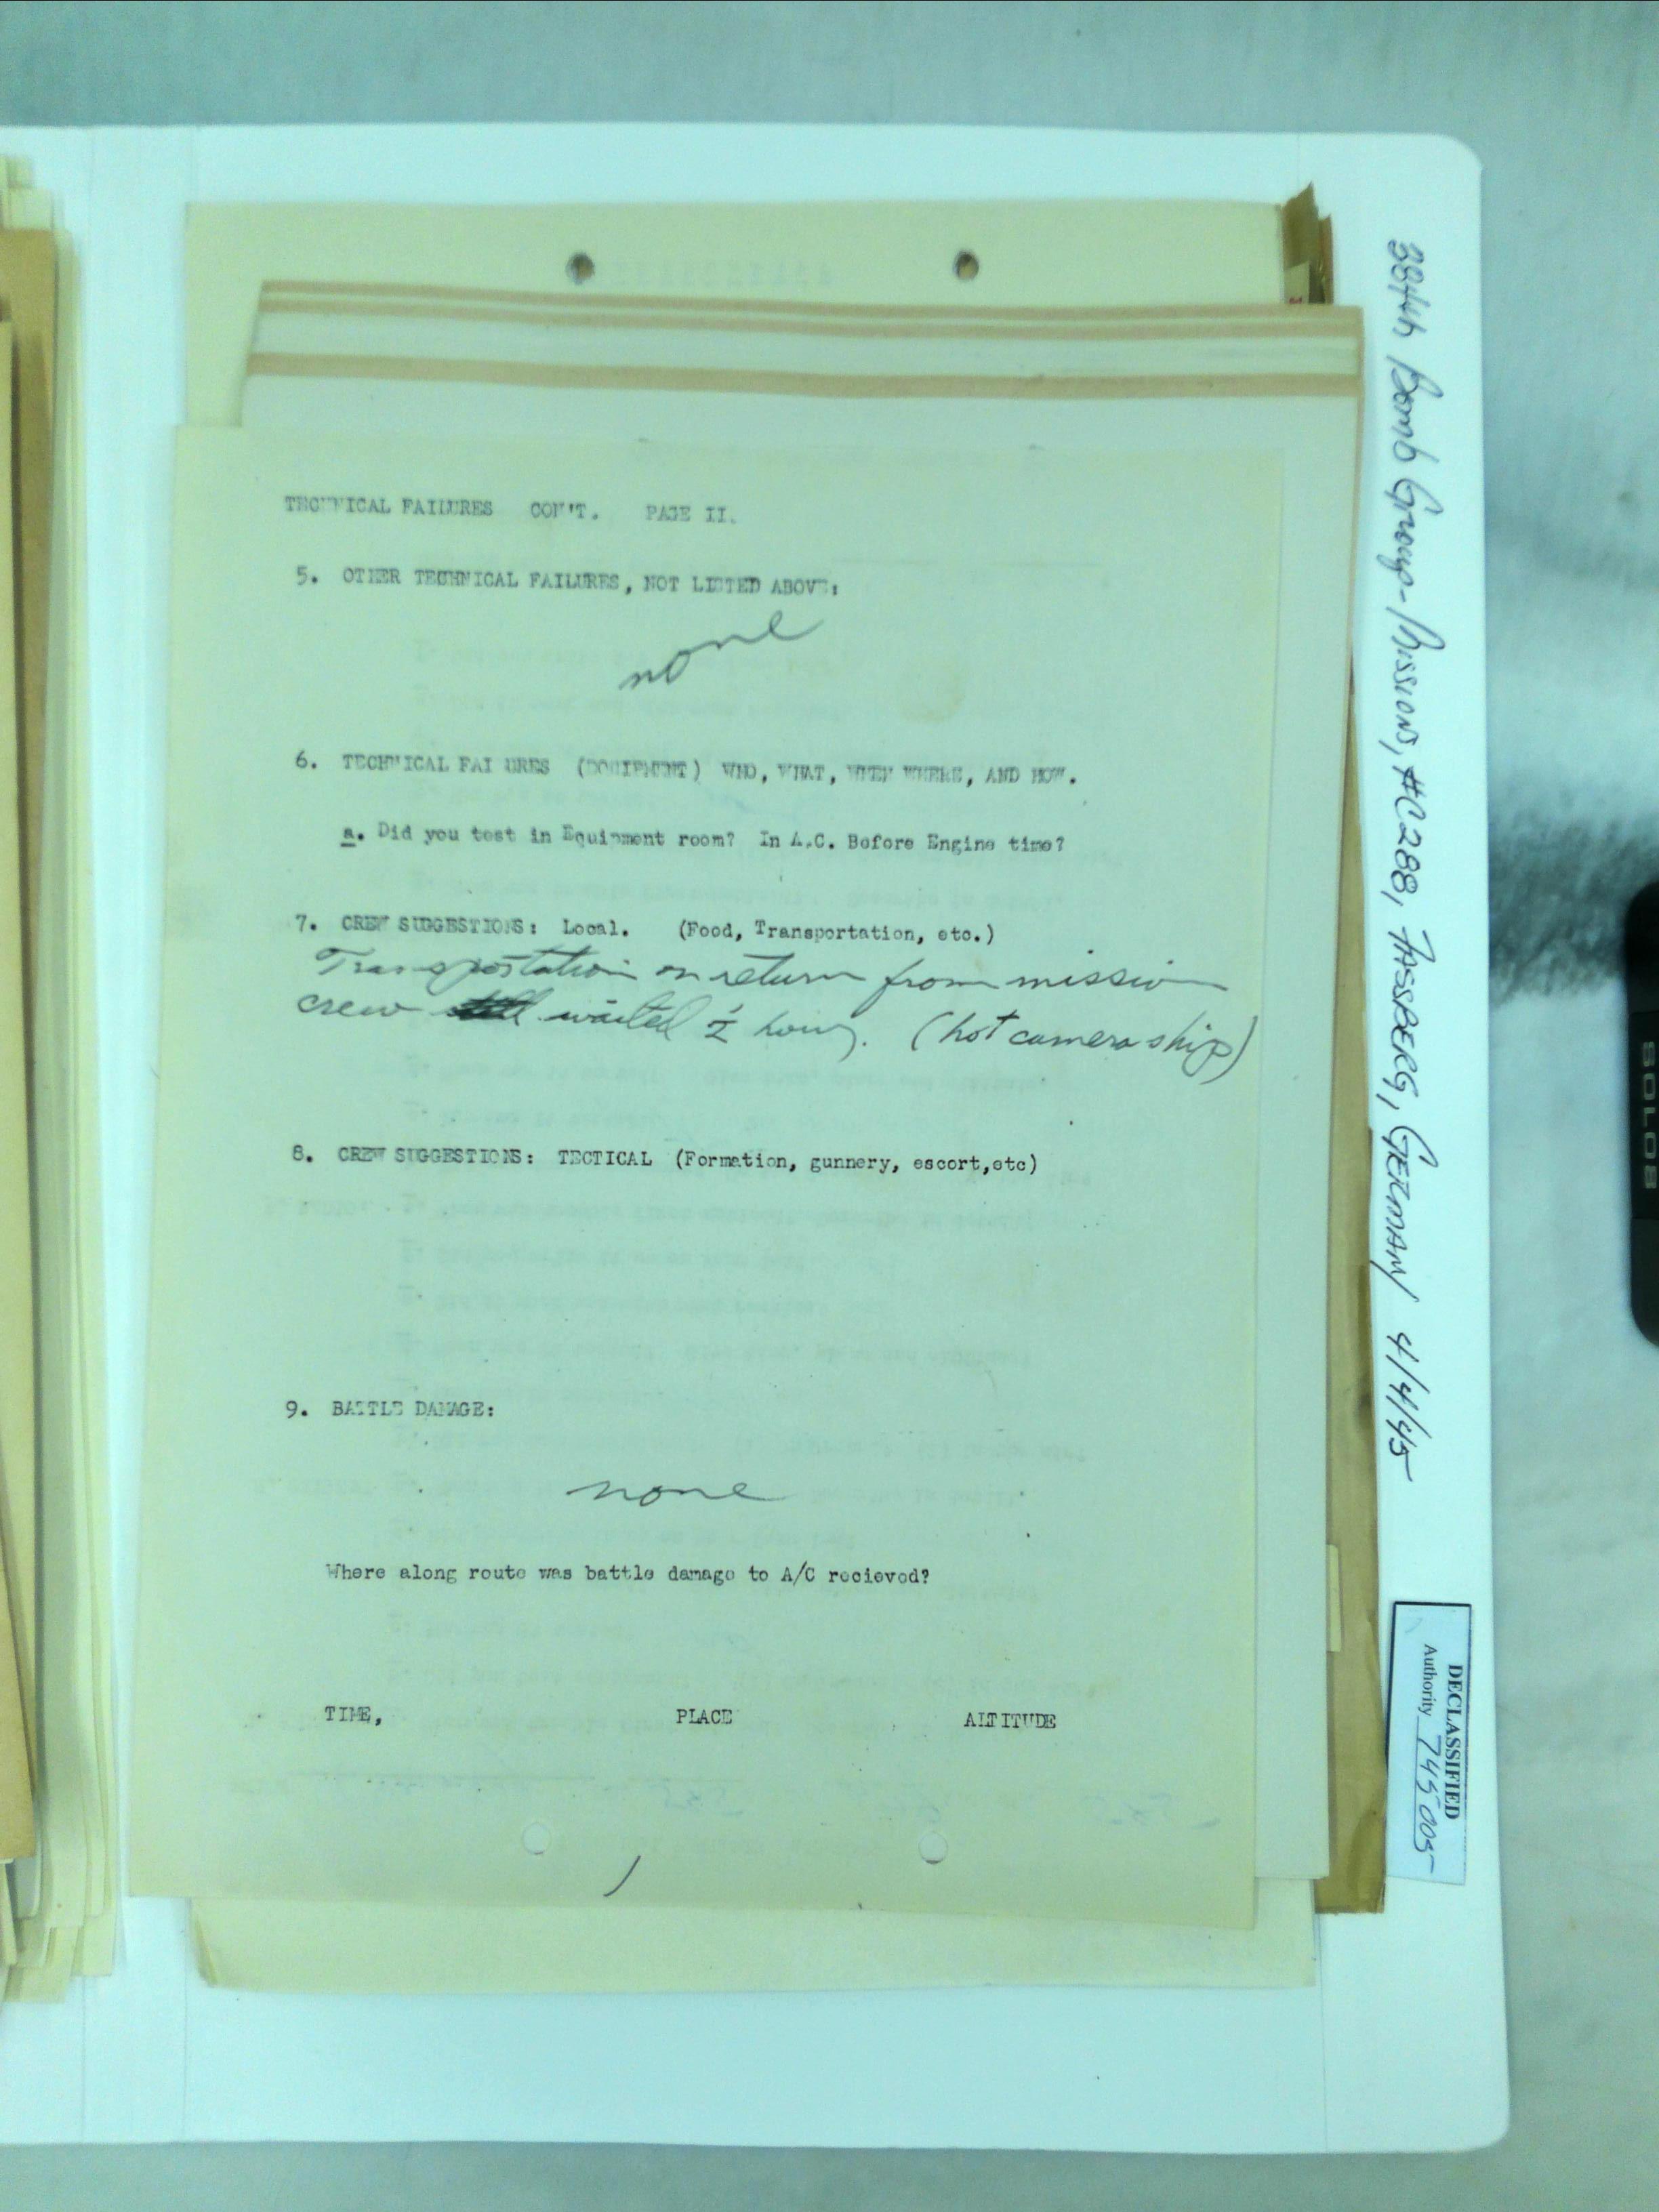 TECHNICAL FAILURES CON'T. PAGE II.
5. OTHER TECHNICAL FAILURES, NOT LISTED ABOVE:
none
6. TECHNICAL FAI URES (EQUIPMENT) WHO, WHAT, WHEN WHERE, AND HOW.
a. Did you test in Equipment room? In A.C. Before Engine time?
7. CREW SUGGESTIONS: Local. (Food, Transportation, etc.)
Transportation on return from mission
crew waited ½ hour. (hot camera ship)
8. CREW SUGGESTIONS: TECTICAL (Formation, gunnery, escort,etc)
9. BATTLE DAMAGE:
none
Where along route was battle damage to A/C recieved?
TIME, PLACE ALTITUDE
384th Bomb Group-Missions, #C288, FASSBERG, GERMANY 4/4/45
DECLASSIFIED
Authority 745005